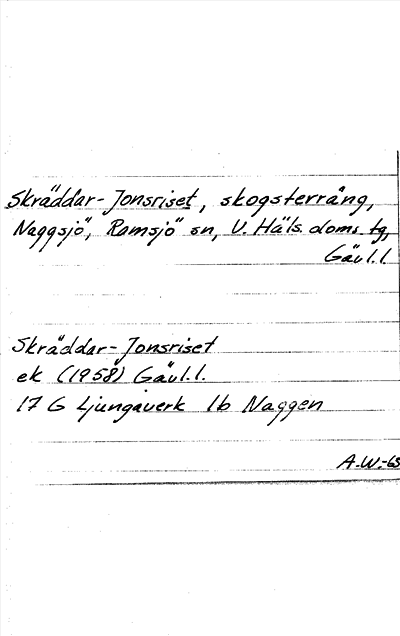 Skräddar-Jonsriset, skogsterräng,
Naggsjö, Ramsjö sn, V. Häls. doms. tg,
Gävl. l.
Skräddar-Jonsriset
ek (1958) Gävl. l.
17 G Ljungaverk 1b Naggen
A.W.-63